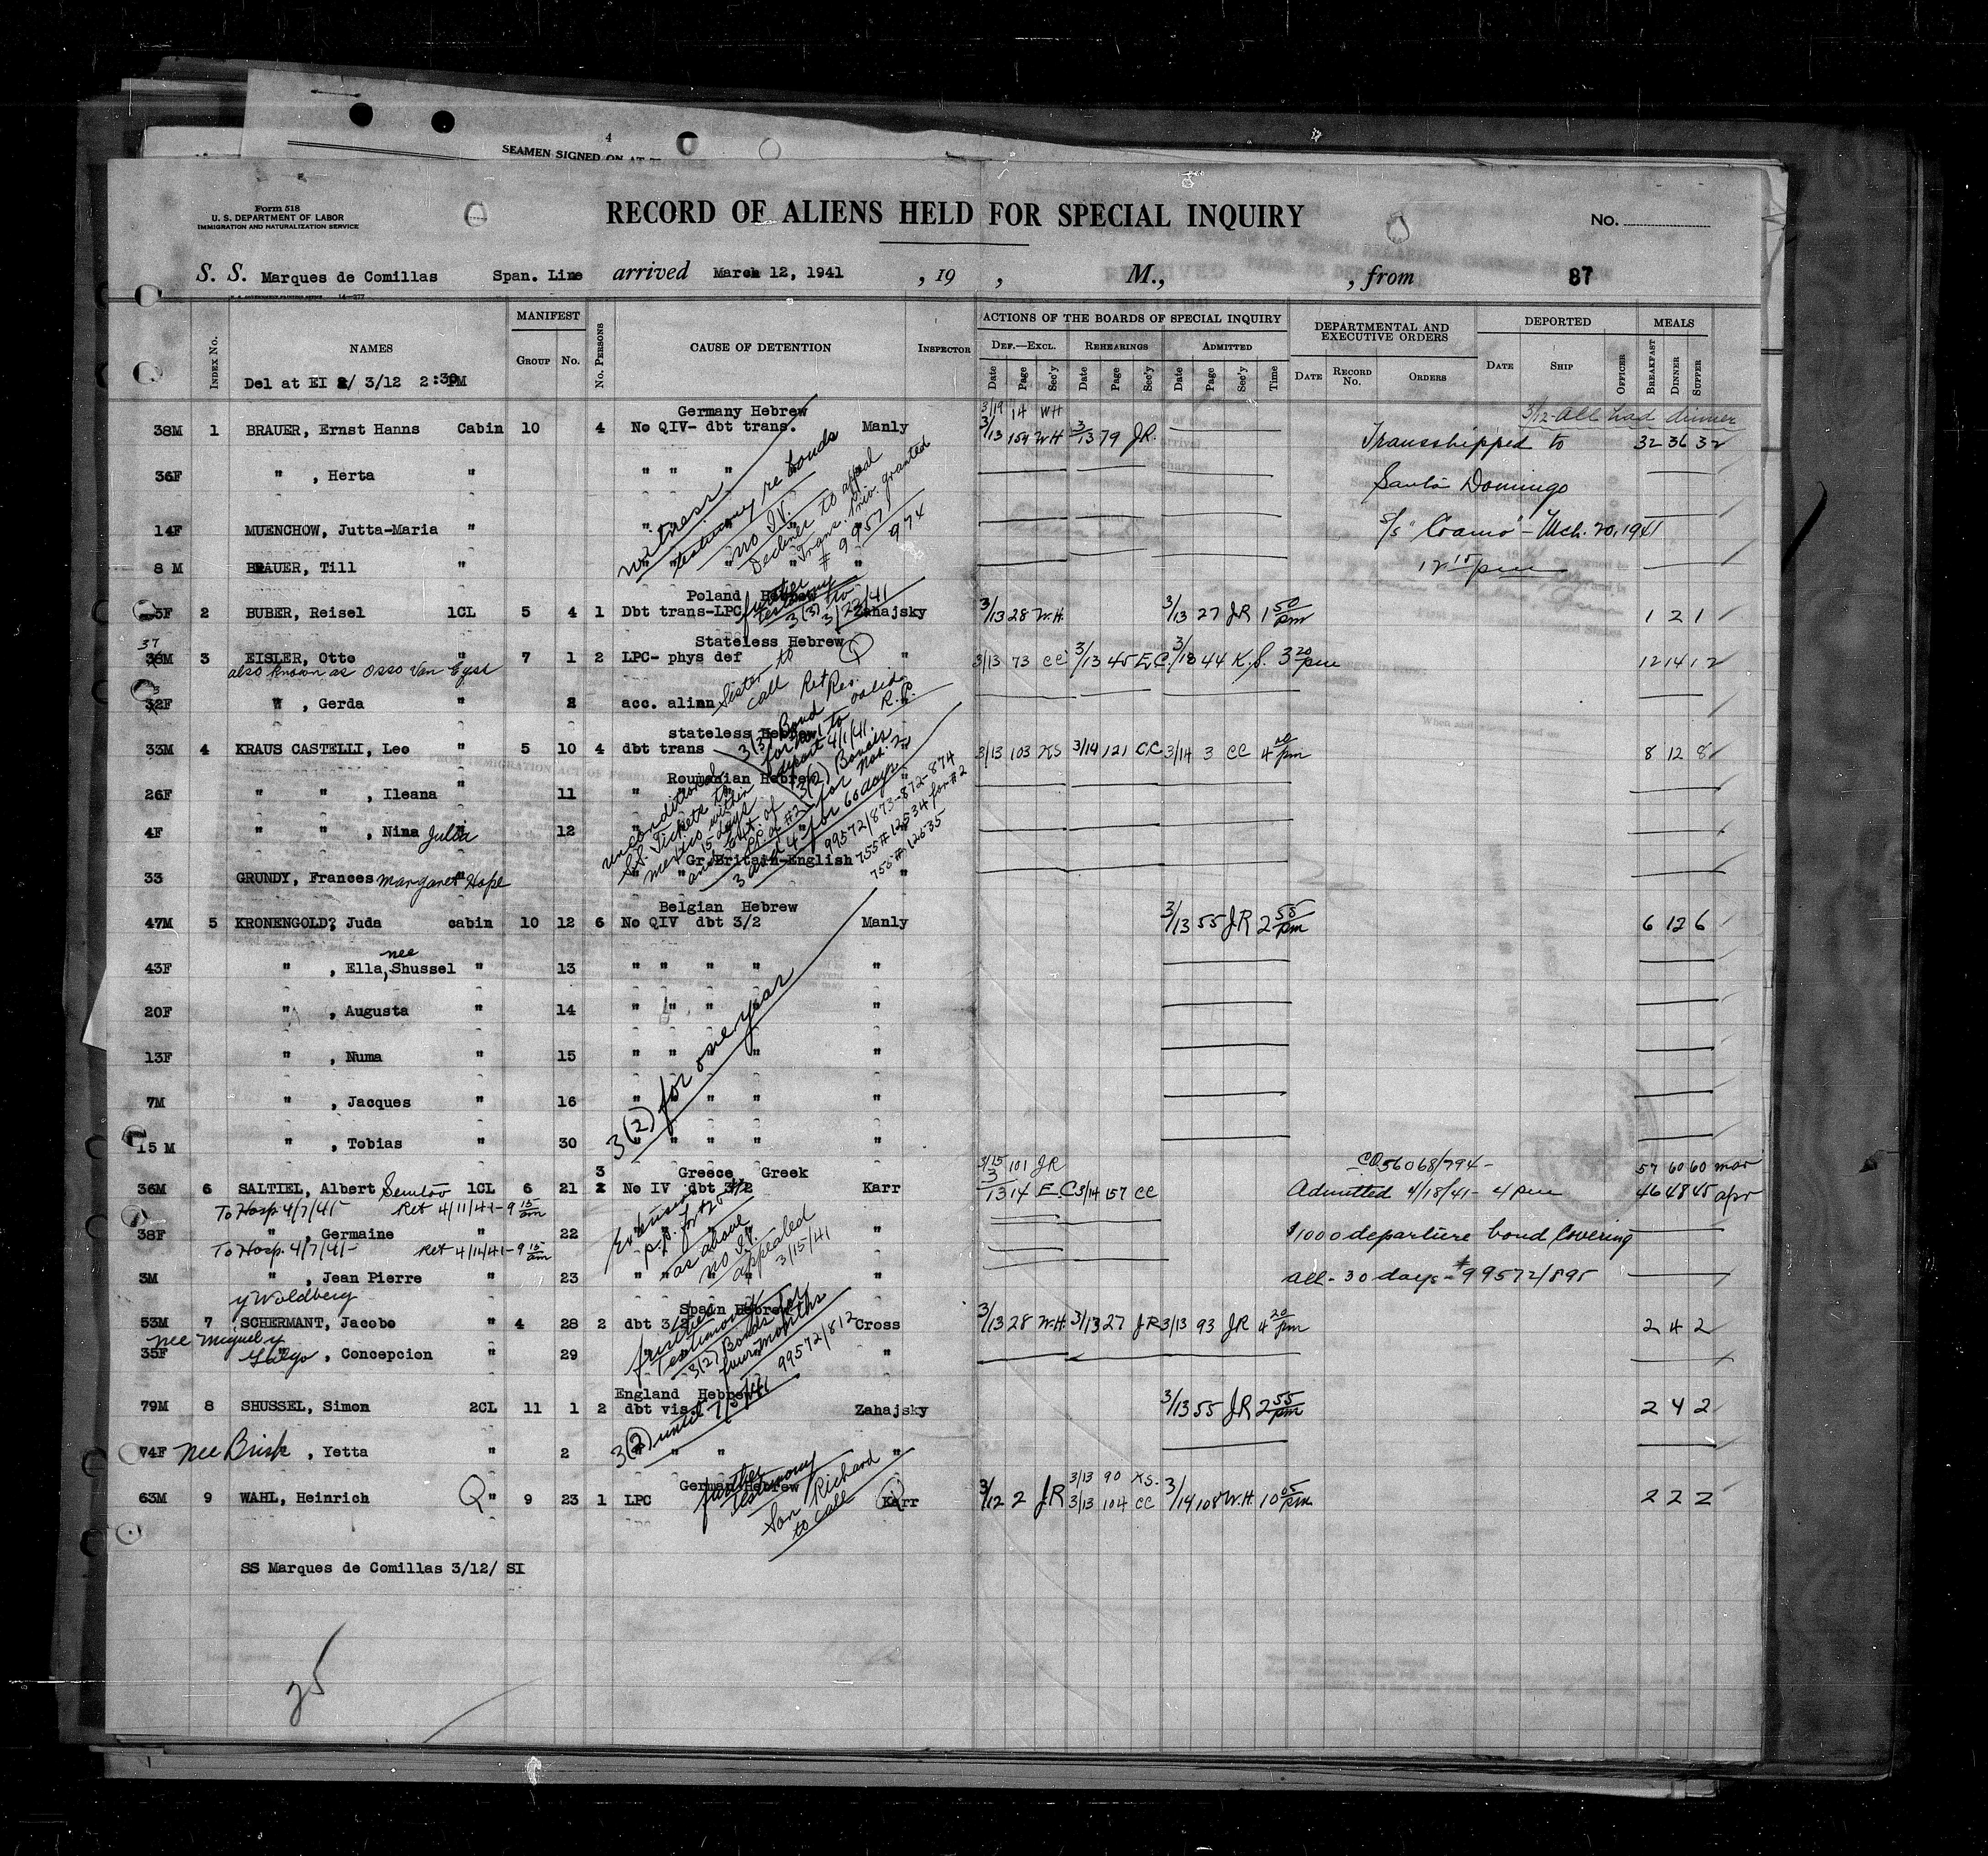 4
SEAMEN SIGNED ON AT
Form 518
U. S. DEPARTMENT OF LABOR
IMMIGRATION AND NATURALIZATION SERVICE
RECORD OF ALIENS HELD FOR SPECIAL INQUIRY
No.
S. S. Marques de Comillas Span. Line arrived March 12, 1941 , 19 , M., , from 87
14—277
INDEX No. NAMES MANIFEST GROUP No. No. PERSONS CAUSE OF DETENTION INSPECTOR ACTIONS OF THE BOARDS OF SPECIAL INQUIRY DEPARTMENTAL AND EXECUTIVE ORDERS DEPORTED MEALS
DEF.—EXCL. REHEARINGS ADMITTED
Date Page Sec'y Date Page Sec'y Date Page Sec'y Time DATE RECORD No. ORDERS DATE SHIP OFFICER BREAKFAST DINNER SUPPER
Del at EI 3/12 2:30PM
3/12-All had dinner
Germany Hebrew 3/19 14 WH
38M 1 BRAUER, Ernst Hanns Cabin 10 4 No QIV- dbt trans. Manly 3/13 159 WH 3/13 79 J.R. Transshipped to 32 36 32
36F " , Herta " " " " Santo Domingo
14F MUENCHOW, Jutta-Maria " S/S "Coamo" - Mch. 20, 1941
8 M BRAUER, Till " " 12 15 pm
witness
testimony re bonds
no I.V.
Declined to appeal
Trans. Priv. granted
# 99571
974
Poland Hebrew
5F 2 BUBER, Reisel 1CL 5 4 1 Dbt trans-LPC Zahajsky 3/13 28 W.H. 3/13 27 JR 1 50 pm 1 2 1
further testimony
Stateless Hebrew
37
36M 3 EISLER, Otto " 7 1 2 LPC- phys def " 3/13 73 CC 3/13 45 E.C. 3/13 44 K.S. 3 20 pm 12 14 12
also known as Osso Van Eyss
32F " , Gerda " 2 acc. alien
Sister to call
stateless Hebrew
33M 4 KRAUS CASTELLI, Leo " 5 10 4 dbt trans 3/13 103 KS 3/14 121 C.C. 3/14 3 CC 4 20 pm 8 12 8
Roumanian Hebrew
26F " " , Ileana " 11
4F " " , Nina Julia " 12
Gr.Britain-English
33 GRUNDY, Frances Margaret Hope "
unconditional
S.S. Tickets to
Mexico within
15 days
3 and 4 for 60 days
99572/873-872-874
755#12534 for #2
755#12535
Belgian Hebrew
47M 5 KRONENGOLD, Juda cabin 10 12 6 No QIV dbt 3/2 Manly 3/13 55 JR 2 55 pm 6 12 6
nee
43F " , Ella, Shussel " 13 " " " " "
20F " , Augusta " 14 " " " "
13F " , Numa " 15 " " " " "
7M " , Jacques " 16 " " " " "
15 M " , Tobias " 30 " " " " "
3(2) for one year
3 Greece Greek 3/15 101 JR CO 56068/794- 57 60 60 mar
36M 6 SALTIEL, Albert Semtov 1CL 6 21 No IV dbt 3/2 Karr 3/13 14 E.C. 3/14 157 CC Admitted 4/18/41- 4 pm 46 48 45 apr
To Hosp 4/7/41 Ret 4/11/41-9 15 am
38F " , Germaine " 22 " $1000 departure bond Covering
To Hosp. 4/7/41- Ret 4/11/41-9 15 am
3M " , Jean Pierre " 23 " all- 30 days- #99572/895
as above
no I.V.
appealed
3/15/41
y Woldberg
Spain Hebrew
53M 7 SCHERMANT, Jacobo " 4 28 2 dbt 3/2 Cross 3/13 28 W.H. 3/13 27 JR 3/13 93 JR 4 20 pm 2 4 2
nee Miguel y
35F Galgo , Concepcion " 29 "
further
testimony
3(2) Bonds for
four months
99572/812
England Hebrew
79M 8 SHUSSEL, Simon 2CL 11 1 2 dbt vis. Zahajsky 3/13 55 JR 2 55 pm 2 4 2
74F nee Brisk , Yetta " 2 " " " "
3(2) until
German Hebrew 3/13 90 KS.
63M 9 WAHL, Heinrich " 9 23 1 LPC Karr 3/12 2 JR 3/13 104 CC 3/14 108 W.H. 10 05 pm 2 2 2
further
testimony
Son Richard
to call
SS Marques de Comillas 3/12/ SI
25